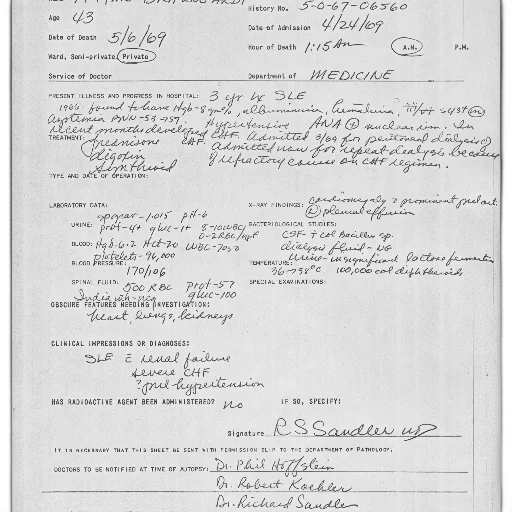 History No. 5-0-67-06560
Age 43
Date of Admission 4/24/69
Date of Death 5/6/69
Hour of Death 1:15 Am A.M. P.M.
Ward, Semi-private, Private
Service of Doctor
Department of MEDICINE
PRESENT ILLNESS AND PROGRESS IN HOSPITAL: 3 yr hx SLE
1966 found to have Hgb-8 gm%, albuminuria, hematuria,
Azotemia BUN-53→75. Hypertensive ANA ⊕ nuclear rim. In
recent months developed CHF. Admitted 3/69 for peritoneal dialysis
TREATMENT: Prednisone CHF. admitted now for repeat dialysis because
digoxin of refractory course on CHF regimen.
Synthroid
TYPE AND DATE OF OPERATION:
LABORATORY DATA:
X-RAY FINDINGS: cardiomegaly prominent pul art.
pleural effusion
URINE: spgrav-1.015 pH-6
prot-4+ gluc-1+ 5-10WBC/
0-2RBC/hpf
BACTERIOLOGICAL STUDIES:
CSF-1 col Bacillus sp.
BLOOD: Hgb-6.2 Hct-20 WBC-7050
dialysis fluid-NG
platelets-96,000
urine-insignificant lactose fermenters
BLOOD PRESSURE: 170/106
TEMPERATURE: 36→38°C 100,000 col diphtheroids
SPINAL FLUID: 500 RBC Prot-57
India ink-neg gluc-100
SPECIAL EXAMINATIONS:
OBSCURE FEATURES NEEDING INVESTIGATION:
heart, lungs, kidneys
CLINICAL IMPRESSIONS OR DIAGNOSES:
SLE c̄ renal failure
severe CHF
? pul hypertension
HAS RADIOACTIVE AGENT BEEN ADMINISTERED? no IF SO, SPECIFY:
Signature R S Sandler MD
IT IS NECESSARY THAT THIS SHEET BE SENT WITH PERMISSION SLIP TO THE DEPARTMENT OF PATHOLOGY.
DOCTORS TO BE NOTIFIED AT TIME OF AUTOPSY: Dr. Phil Hoffstein
Dr. Robert Kachler
Dr. Richard Sandler